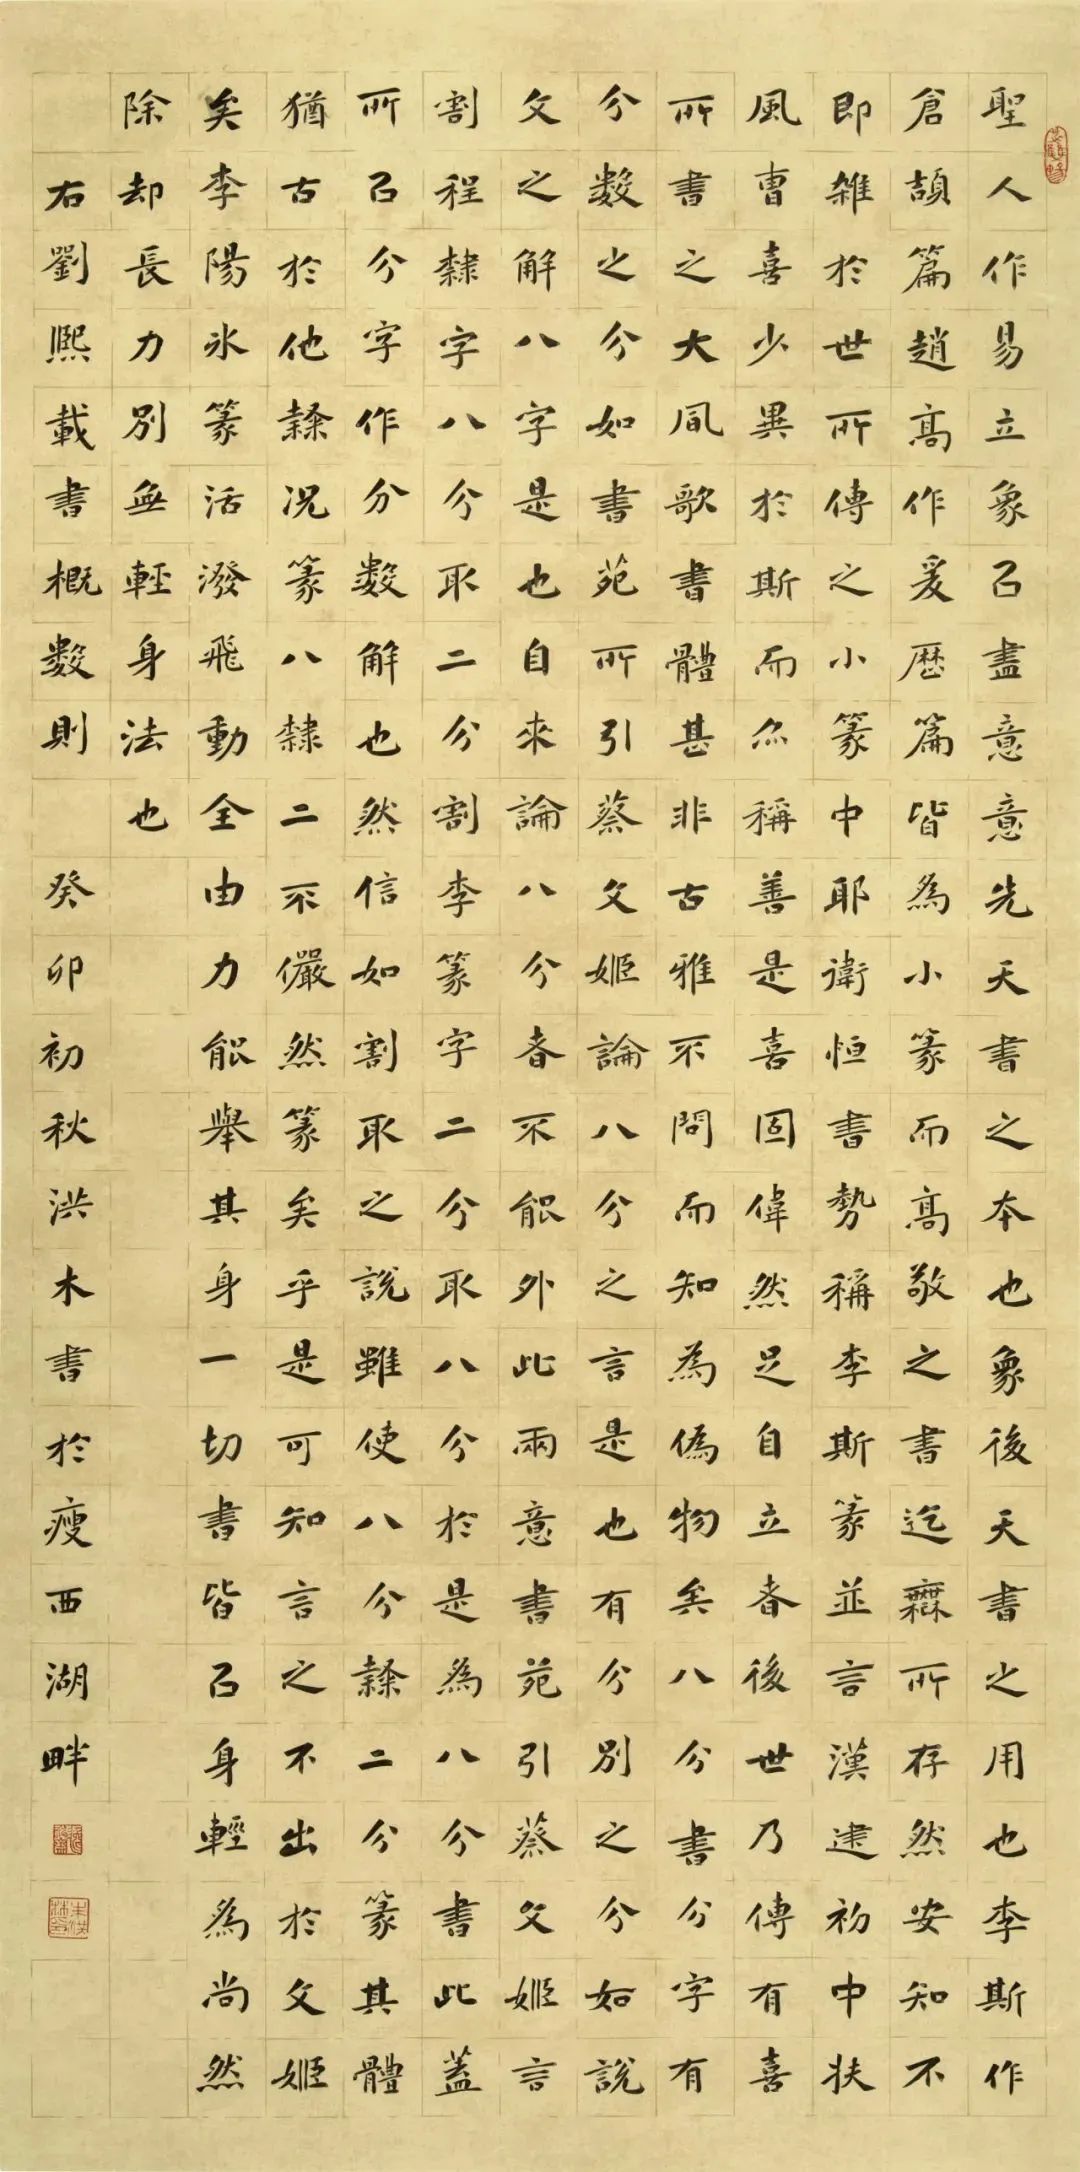 聖人作易立象㠯盡意意先天書之本也象後天書之用也李斯作
倉頡篇趙高作爰歷篇皆為小篆而高敬之書迄無所存然安知不
即雜於世所傳之小篆中耶衛恒書勢稱李斯篆並言漢建初中扶
風曹喜少異於斯而亦稱善是喜固偉然足自立者後世乃傳有喜
所書之大風歌書體甚非古雅不問而知為偽物矣八分書分字有
分數之分如書苑所引蔡文姬論八分之言是也有分別之分如說
文之解八字是也自來論八分者不能外此兩意書苑引蔡文姬言
割程隸字八分取二分割李篆字二分取八分於是為八分書此蓋
所㠯分字作分數解也然信如割取之說雖使八分隸二分篆其體
猶古於他隸況篆八隸二不儼然篆矣乎是可知言之不出於文姬
矣李陽冰篆活潑飛動全由力能舉其身一切書皆㠯身輕為尚然
除却長力別無輕身法也
右劉熙載書概數則 癸卯初秋洪木書於瘦西湖畔